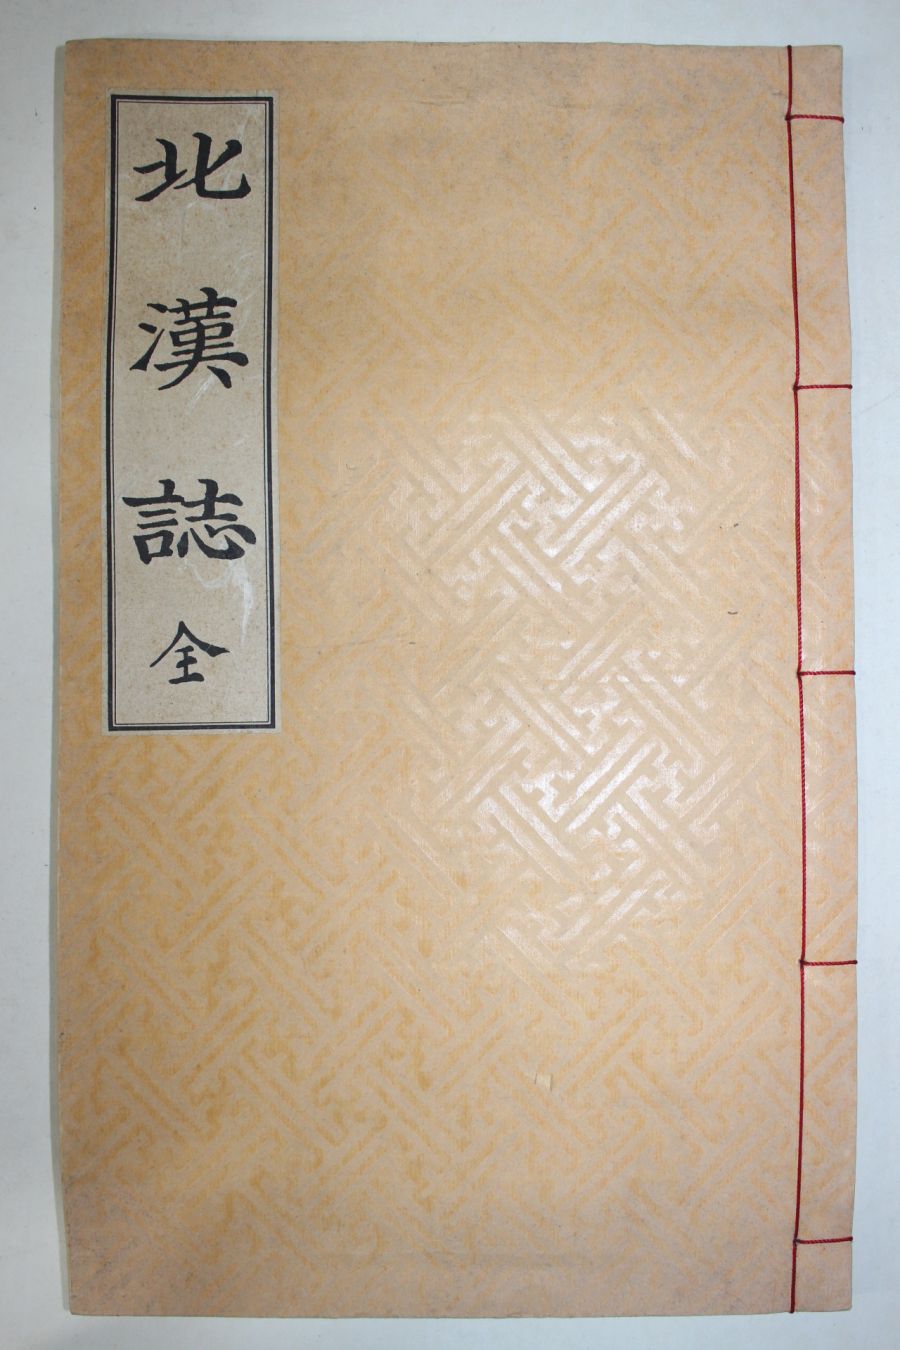 北漢誌 全